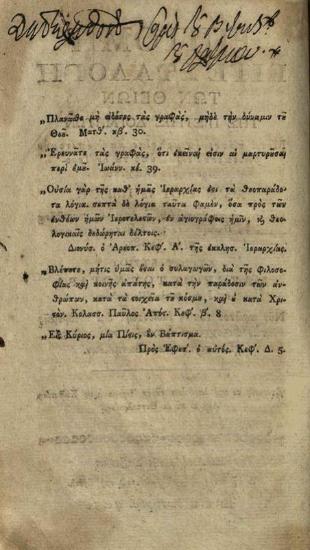 „Πλανᾶσθε μὴ εἰδότες τὰς γραφάς, μηδὲ τὴν δύναμιν τοῦ
Θεοῦ. Ματθ. κβ΄. 30.
„Ἐρευνᾶτε τὰς γραφάς, ὅτι ἐκεῖναί εἰσιν αἱ μαρτυροῦσαι
περὶ ἐμοῦ. Ἰωάνν. κε. 39.
„Οὐσία γὰρ τῆς καθ᾽ ἡμᾶς Ἱεραρχίας ἐστὶ τὰ Θεοπαράδο-
τα λόγια. σεπτὰ δὲ λόγια ταῦτα φαμὲν, ὅσα πρὸς τῶν
ἐνθέων ἡμῶν Ἱεροτελεστῶν, ἐν ἁγιογράφοις ἡμῖν, ϗ Θεο-
λογικαῖς δεδώρηται δέλτοις.
Διονύσ. ὁ Ἀρεοπ. Κεφ. Α΄. τῆς ἐκκλησ. Ἱεραρχίας.
„Βλέπετε, μήτις ὑμᾶς ἔσαι ὁ συλαγωγῶν, διὰ τῆς φιλοσο-
φίας καὶ κοινῆς ἀπάτης, κατὰ τὴν παράδοσιν τῶν ἀν-
θρώπων, κατὰ τὰ στοιχεῖα τοῦ κόσμου, καὶ οὐ κατὰ Χρι-
στόν. Κολασσ. Παῦλος Ἀπόσ. Κεφ. β΄. 8
„Εἷς Κύριος, μία Πίστις, ἓν Βάπτισμα.
Πρὸς Ἐφεσ. ὁ αὐτός. Κεφ. Δ. 5.